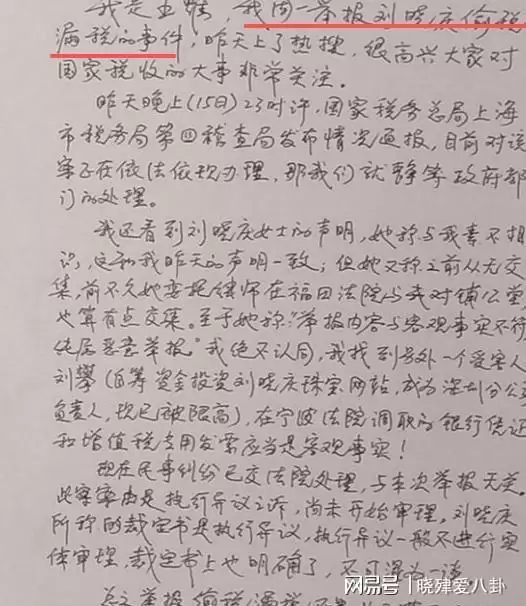 我是王辉，我周一举报刘晓庆偷税
漏税的事件，昨天上了热搜，很高兴大家对
国家税收的大事非常关注。
昨天晚上(15日)23时许，国家税务总局上海
市税务局第四稽查局发布情况通报，目前对该
案正在依法依规办理，那我们就静等政府部
门的处理。
我还看到刘晓庆女士的声明，她称与我素不相
识，这和我昨天的声明一致；但她又称之前从无交
集，前不久她委托律师在福田法院与我对铺公堂
也算有点交集。至于她称："举报内容与客观事实不符
纯属恶意举报"我绝不认同，我找到另外一个受害人
刘攀(自筹资金投资刘晓庆珠宝网站，成为深圳分公司
负责人，现已被限高)，在宁波法院调取的银行凭证
和增值税专用发票应当是客观事实！
现在民事纠纷已交法院处理，与本次举报无关
此案案由是执行异议之诉，尚未开始审理。刘晓庆
所称的裁定书是执行异议，执行异议一般不进行实
体审理，裁定书上也明确了，不可混为一谈
总之举报偷税漏税
网易号 | 晓肄爱八卦